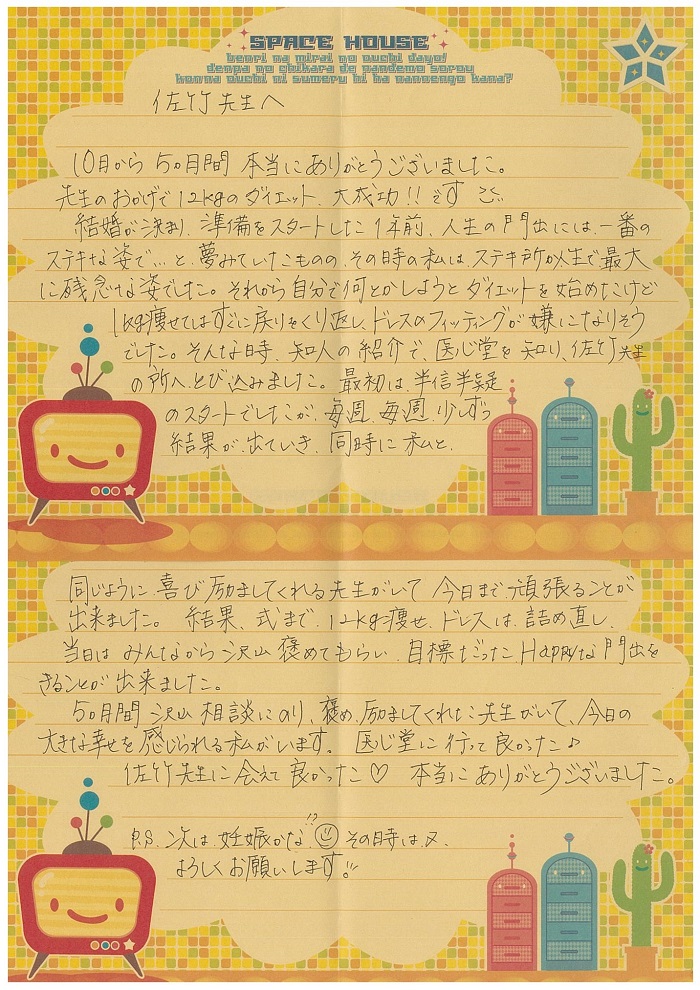 SPACE HOUSE
benri na mirai no ouchi dayo!
denpa no chikara de nandemo sorou
konna ouchi ni sumeru hi ha nannengo kana?
佐竹先生へ
10月から5ヵ月間 本当にありがとうございました。
先生のおかげで12kgのダイエット、大成功!!です
結婚が決まり、準備をスタートした1年前、人生の門出には、一番の
ステキな姿で…と、夢みていたものの、その時の私は、ステキ所か人生で最大
に残念な姿でした。それから自分で何とかしようとダイエットを始めたけど
1kg痩せてはすぐに戻りをくり返し、ドレスのフィッティングが嫌になりそう
でした。そんな時、知人の紹介で、医心堂を知り、佐竹先生
の所へとび込みました。最初は、半信半疑
のスタートでしたが、毎週、毎週、少しずつ
結果が出ていき、同時に私と、
同じように、喜び励ましてくれる先生がいて 今日まで頑張ることが
出来ました。 結果、式まで、12kg痩せ、ドレスは、詰め直し、
当日は みんなから沢山褒めてもらい、目標だったHappyな門出を
きることが出来ました。
5ヵ月間 沢山 相談にのり、褒め、励ましてくれた先生がいて、今日の
大きな幸せを感じられる私がいます。 医心堂に行って良かった♪
佐竹先生に会えて良かった♡ 本当にありがとうございました。
P.S. 次は、妊娠かな!? その時は、又、
よろしくお願いします!!